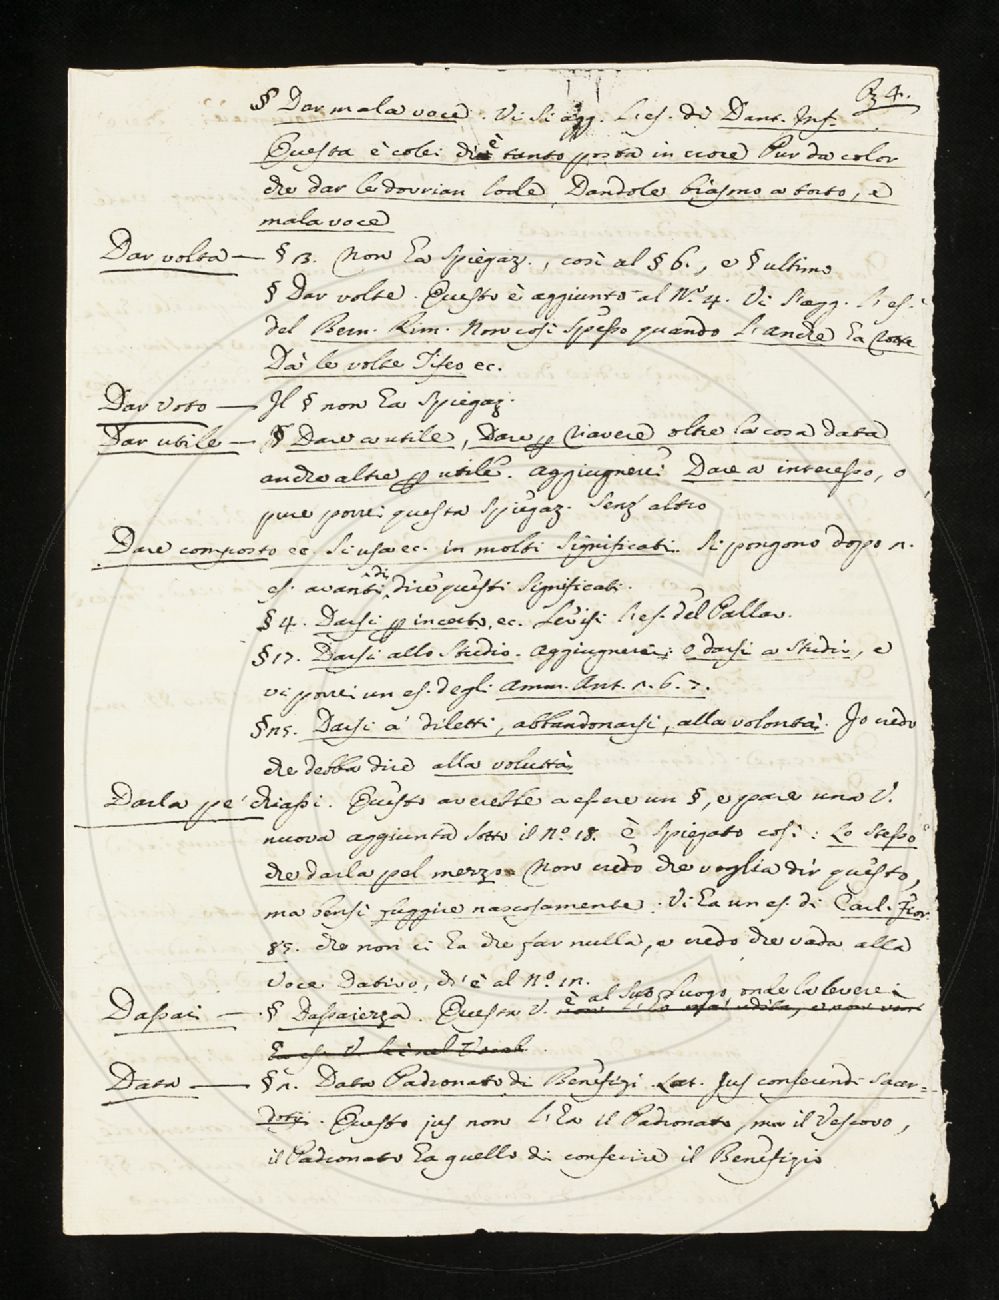 34.
§ Dar mala voce. Vi si agg. l'es. di Dant. Inf.
Questa è colei ch'è tanto posta in croce Pur da color
che dar le dovrian lode, Dandole biasmo a torto, e
mala voce
Dar volta — § 13. Non ha spiegaz., così al § 6., e § ultimo
§ Dar volte. Questo è aggiunto al N.º 4. Vi s'agg. l'es.
del Bern. Rim. Non così spesso quando l'anche ha rotte
Dà le volte Tifeo ec.
Dar voto — Il § non ha spiegaz.
Dar utile — § Dare a utile, Dare p riavere oltre la cosa data
anche altre p utile. Aggiugnerei Dare a interesso, o
pure porrei questa spiegaz. senz' altro
Dare composto ec. si usa ec. in molti significati. Si pongono dopo n.
es. avanti di dire questi significati.
§ 4. Darsi p incerto, ec. Levisi l'es. del Pallav.
§ 17. Darsi allo studio. Aggiugnerei: o darsi a studi, e
vi porrei un es. degli Amm. Ant. 1. 6. 7.
§ 25. Darsi a' diletti, abbandonarsi, alla volontà. Io credo
che debba dire alla voluttà
Darla pe' chiassi. Questo averebbe a essere un §, e pare una V.
nuova aggiunta sotto il N.º 18. è spiegato così: Lo stesso
che darla pel mezzo. Non credo che voglia dir questo,
ma bensì fuggire nascosamente. Vi ha un es. di Carl. Fior.
85. che non ci ha che far nulla, e credo che vada alla
voce Dativo, ch'è al N.º 12.
Dassai — § Dassaiezza. Questa V. è al suo luogo, onde la leverei
Data — § 2. Data Padronato di Benefizi. Lat. Jus conferendi sacer-
dotii. Questo jus non l'ha il Padronato, ma il Vescovo,
il Padronato ha quello di conferire il Benefizio